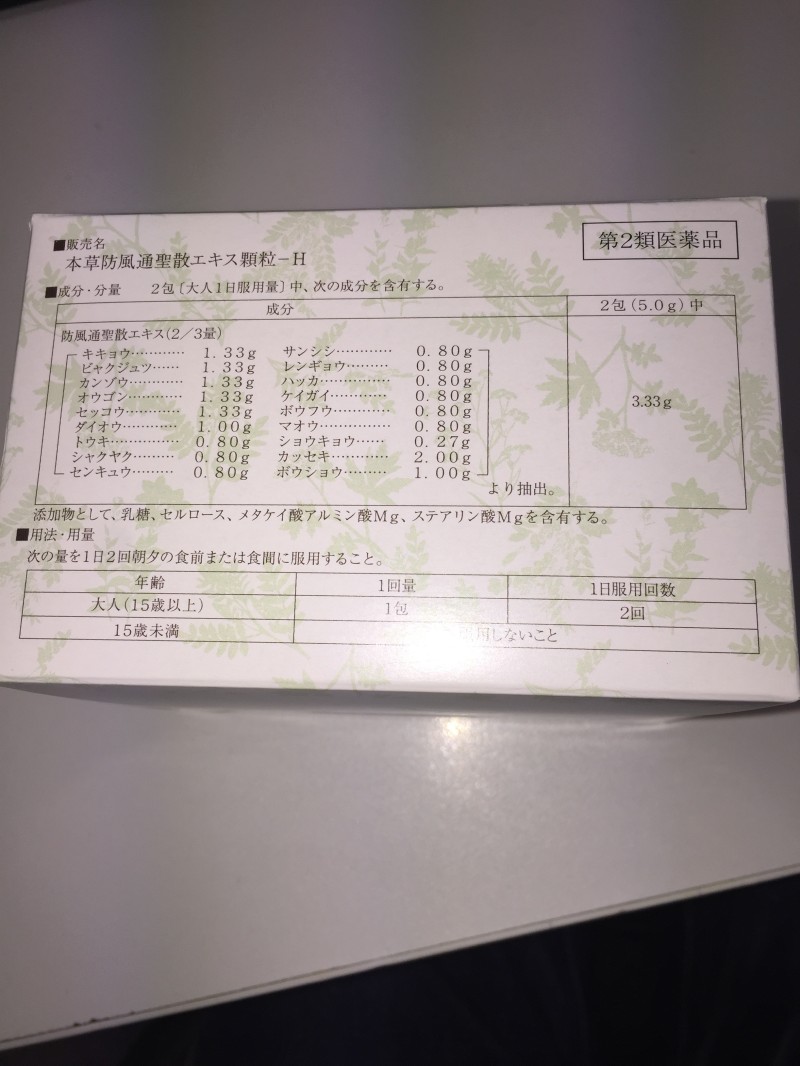 ■販売名
本草防風通聖散エキス顆粒－H
第2類医薬品
■成分・分量 2包〔大人1日服用量〕中、次の成分を含有する。
成分 2包(5.0g)中
防風通聖散エキス(2/3量) 3.33g
キキョウ………… 1.33g サンシシ………… 0.80g
ビャクジュツ…… 1.33g レンギョウ……… 0.80g
カンゾウ………… 1.33g ハッカ…………… 0.80g
オウゴン………… 1.33g ケイガイ………… 0.80g
セッコウ………… 1.33g ボウフウ………… 0.80g
ダイオウ………… 1.00g マオウ…………… 0.80g
トウキ…………… 0.80g ショウキョウ…… 0.27g
シャクヤク……… 0.80g カッセキ………… 2.00g
センキュウ……… 0.80g ボウショウ……… 1.00g
より抽出。
添加物として、乳糖、セルロース、メタケイ酸アルミン酸Mg、ステアリン酸Mgを含有する。
■用法・用量
次の量を1日2回朝夕の食前または食間に服用すること。
年齢 1回量 1日服用回数
大人(15歳以上) 1包 2回
15歳未満 しないこと